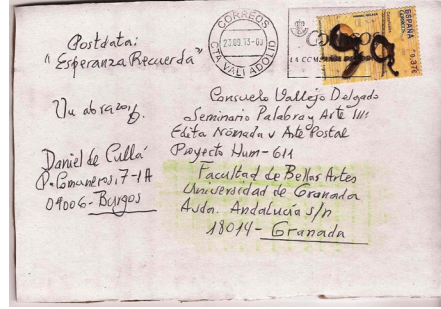 Postdata:
"Esperanza Recuerda"
Un abrazo
Daniel de Cullá
P. Comuneros, 7-1A
09006-Burgos
CORREOS
CTA. VALLADOLID
LA
ESPAÑA
Consuelo Vallejo Delgado
Seminario Palabra y Arte III:
Edita Nómada y Arte Postal
Proyecto Hum-611
Facultad de Bellas Artes
Universidad de Granada
Avda. Andalucía s/n
18014-Granada